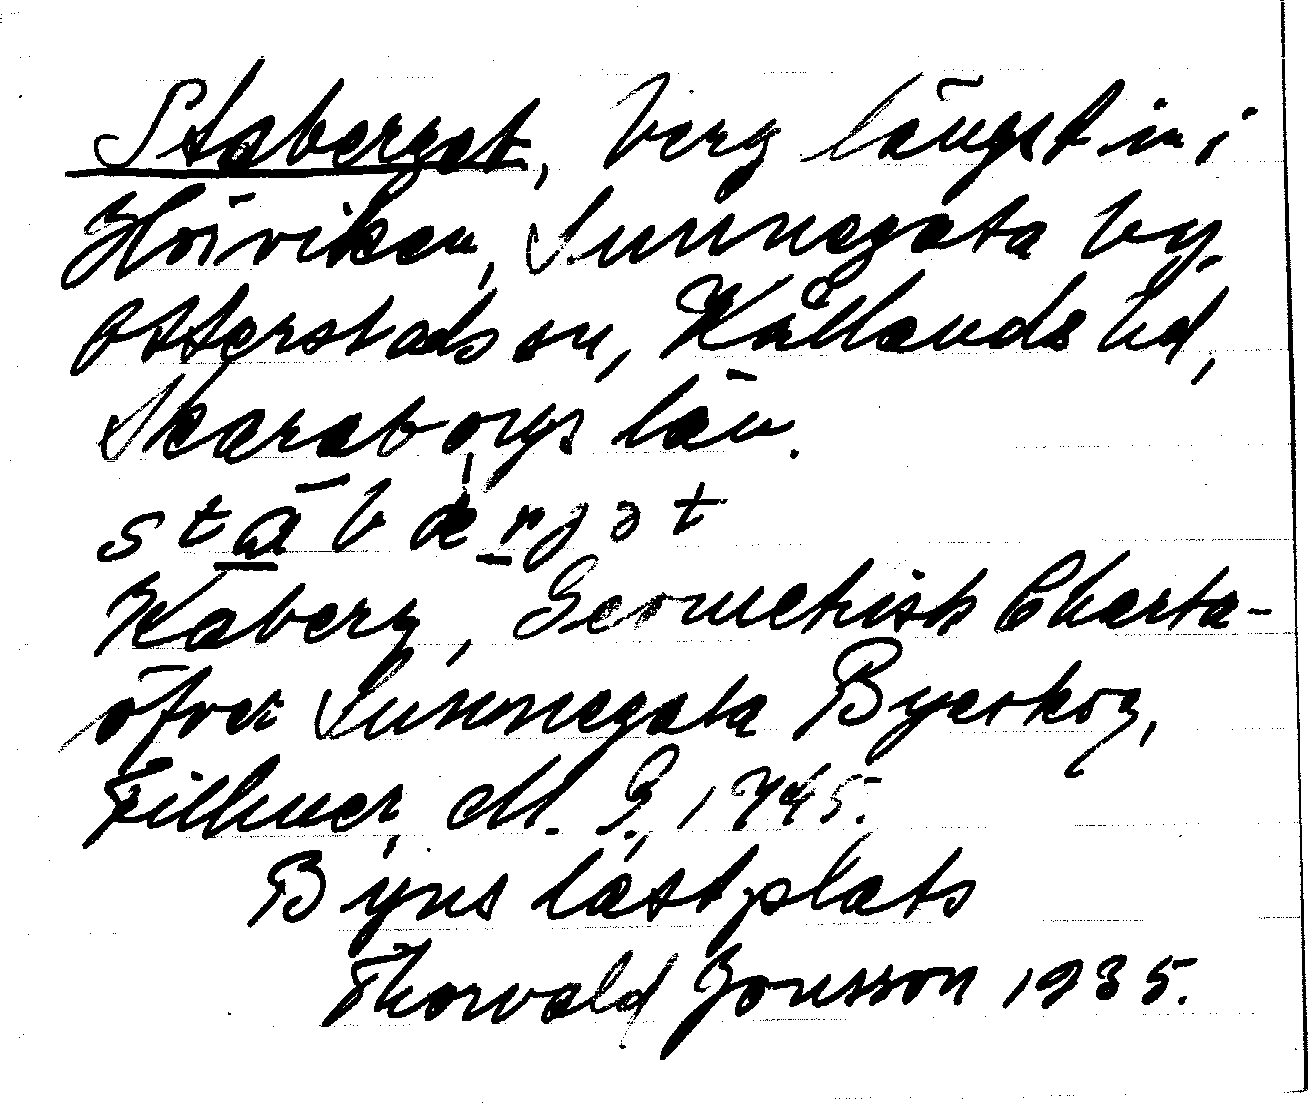 Staberget, berg längst in i
Hörviken, Sunnegata by,
Otterstads sn, Kållands hd,
Skaraborgs län.
stābærjət
Kaberg, Geometrisk Charta-
öfver Sunnegata Byeskog,
Fillmer, M. G., 1745.
Byns lastplats
Thorvald Jonsson 1935.